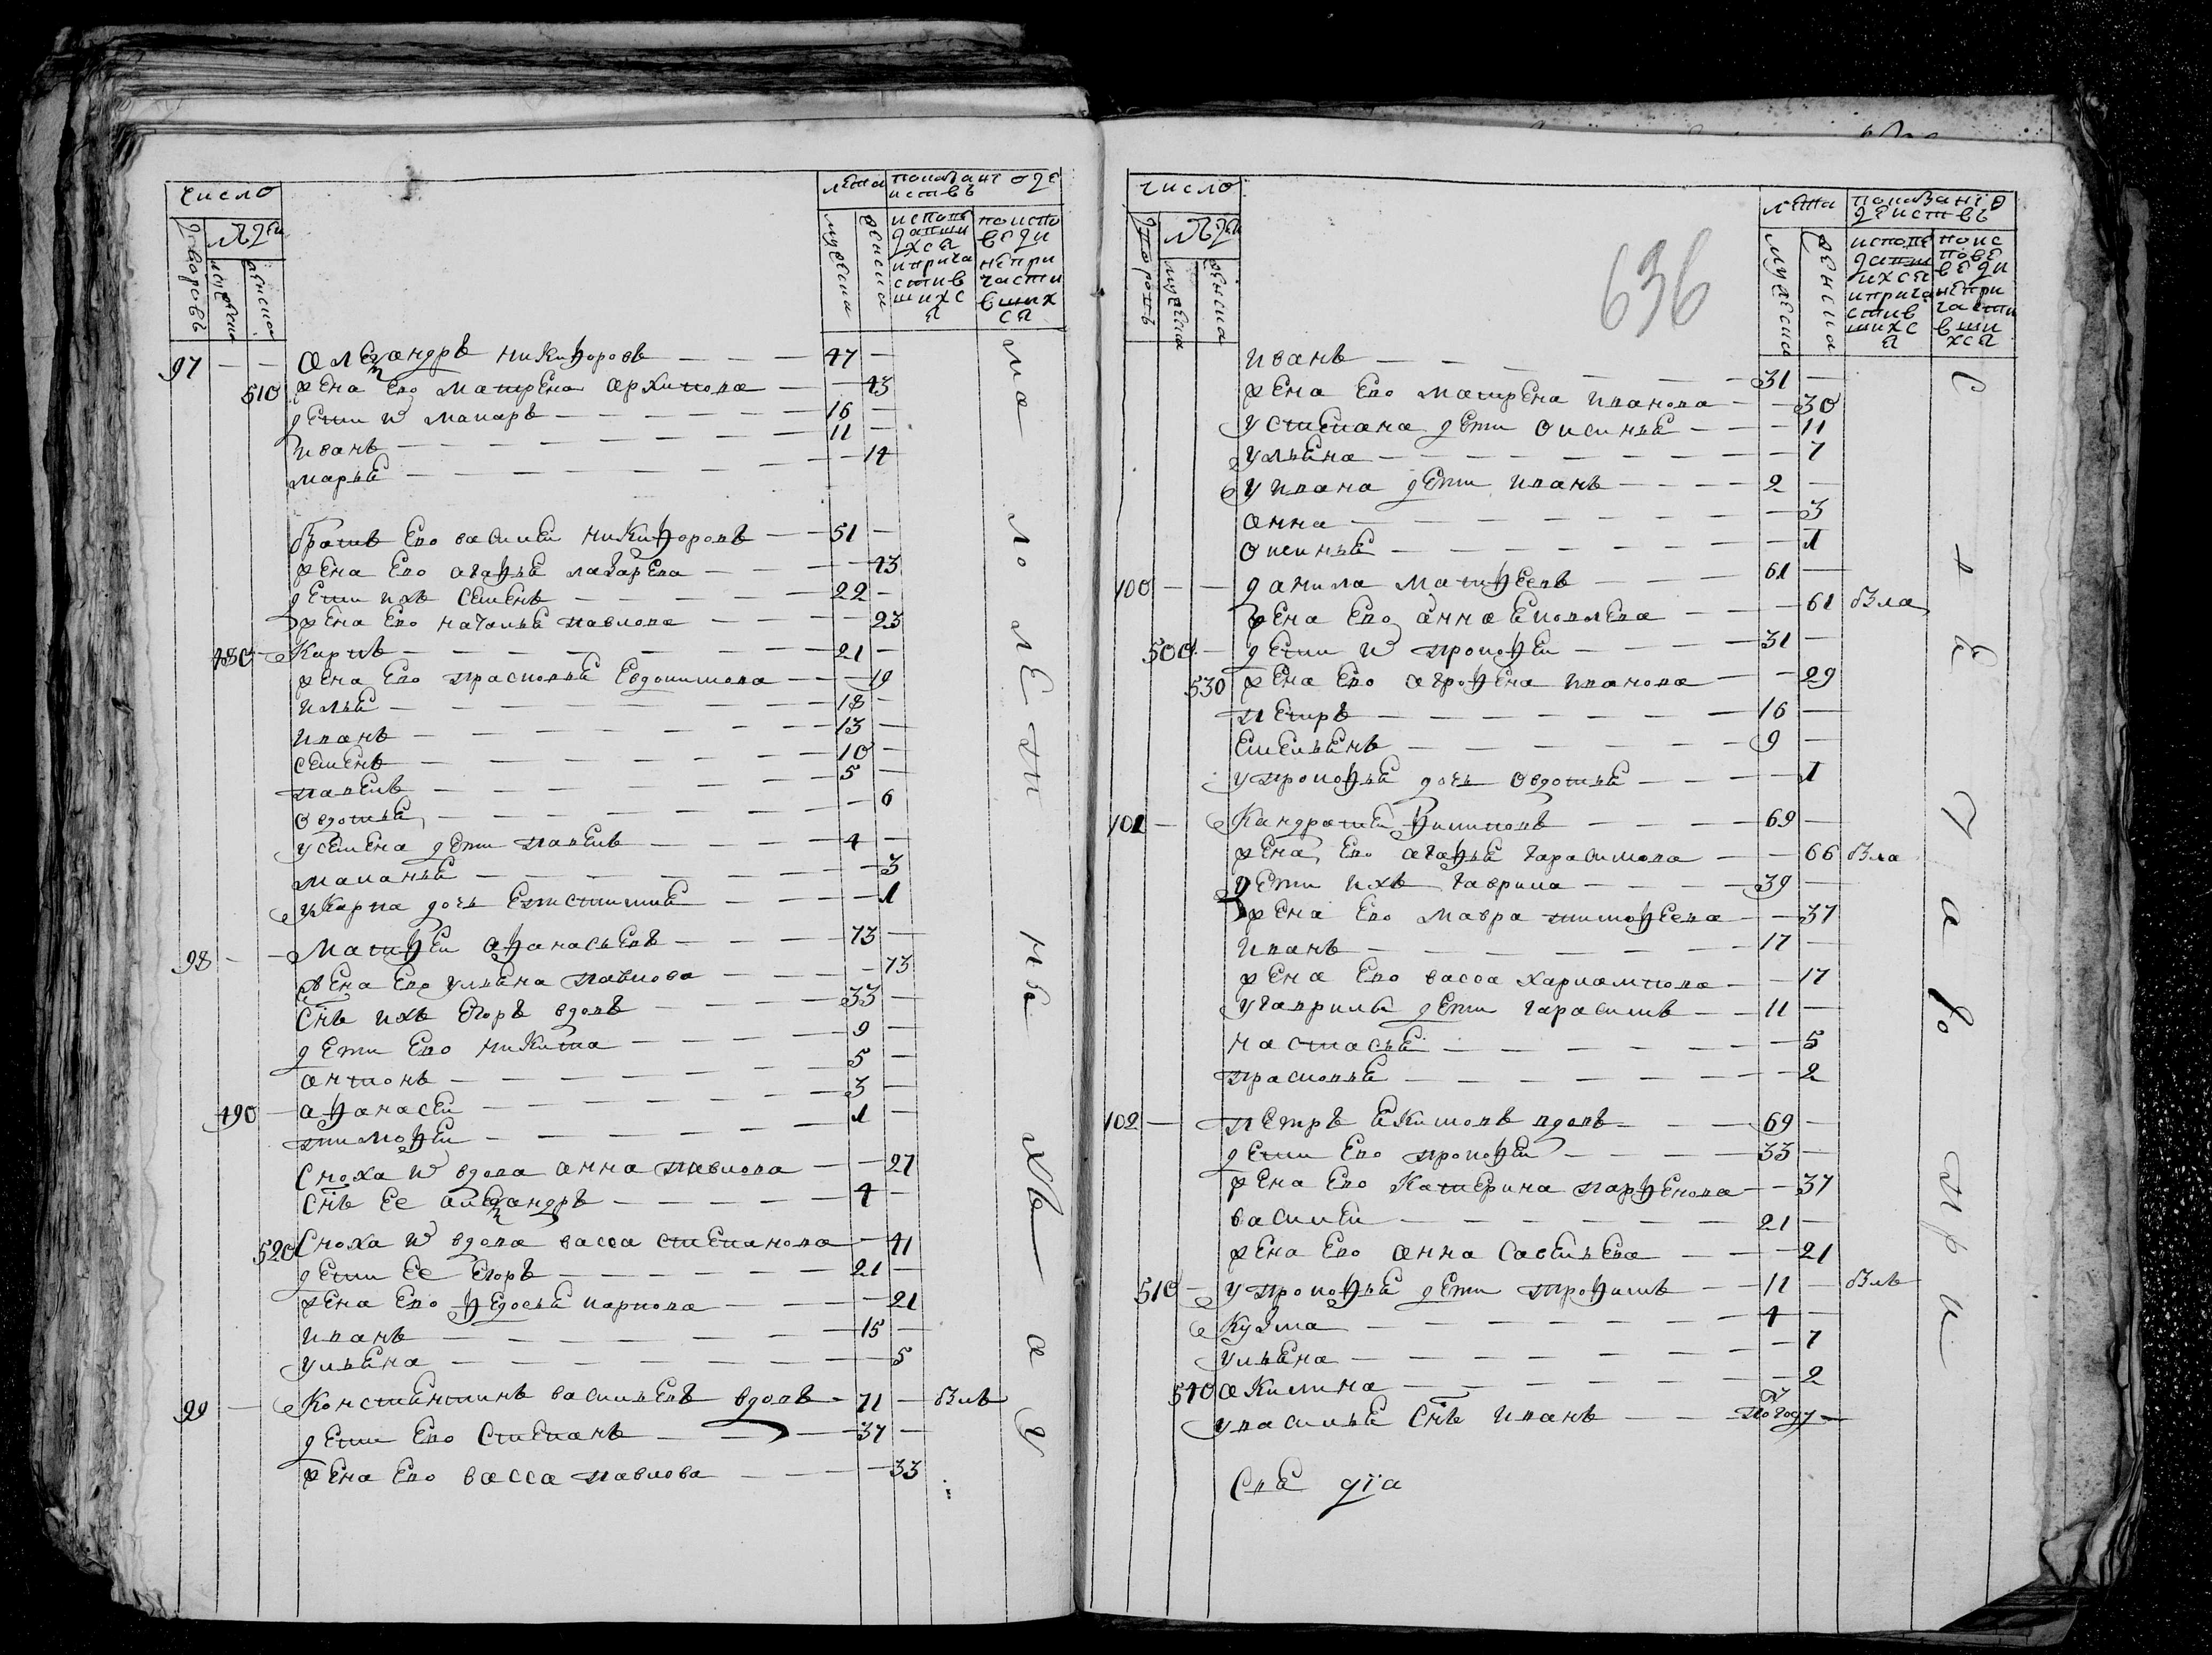 число
лета
показание о де
иствъ
дворовъ
людеи
мужеска
женска
мужеска
женска
исповѣ
давши
хся
и прича
стив
шихс
я
по испо
веди
не при
части
вших
ся
97 — — Олеѯандръ никифоровъ — — — 47 —
510 жена ево матрена архипова — — 43
дети их макаръ — — — 16 —
иванъ — — — 11 —
марья — — — — 14
братъ ево василеи никифоровъ — — 51 —
жена ево агафья лазарева — — — — 43
дети ихъ семенъ — — — 22 —
жена ево наталья павлова — — — — 23
480 — Карпъ — — — 21 —
жена ево прасковья Евдокимова — — — 19
илья — — — 18 —
иванъ — — — 13 —
семенъ — — — 10 —
павелъ — — — 5 —
овдотья — — — — 6
у семена дети павелъ — — — 4 —
маланья — — — — 3
у карпа дочь Епистимия — — — — 1
98 — — Матфеи афанасьевъ — — — 73 —
жена ево ульяна павлова — — — — 73
снъ ихъ егоръ вдовъ — — — 33 —
дети ево никита — — — 9 —
антонъ — — — 5 —
490 — афанасеи — — — 3 —
тимофеи — — — 1 —
Сноха их вдова анна павлова — — 27
снъ ее алеѯандръ — — — 4 —
520 Сноха их вдова васса степанова — — 41
дети ее егоръ — — — 21 —
жена ево федосья карпова — — — 21
иванъ — — — 15 —
ульяна — — — — 5
99 — Констянтинъ васильевъ вдовъ — 71 — былъ
дети ево степанъ — — 37 —
жена ево васса павлова — — — 33
малолетна
число
636
лета
показаніе
деиствъ
людеи
мужеска
женска
мужеска
женска
исповѣ
давш
ихся
и прича
стив
шихс
я
по ис
пове
веди
не при
части
вши
хся
иванъ — — — 31 —
жена ево матрена иванова — — 30
у степана дети оксинья — — — 11
ульяна — — — — 7
у ивана дети иванъ — — — 2 —
анна — — — — 3
оксинья — — — — 1
100 — — данила матфеевъ — — — 61 —
жена ево анна яковлева — — — 61 была
500 — дети их прокофеи — — — 31 —
530 жена ево аграфена иванова — — 29
петръ — — — 16 —
емельянъ — — — 9 —
у прокофья дочь овдотья — — — — 1
101 — Кандратеи филиповъ — — — 69 —
жена ево агафья гарасимова — — 66 была
дети ихъ гаврила — — — 39 —
жена ево мавра тимофеева — — 37
иванъ — — — 17 —
жена ево васса харлампова — — 17
у гаврилы дети гарасимъ — — 11 —
настасья — — — — 5
прасковья — — — — 2
102 — петръ якимовъ вдовъ — — — 69 —
дети ево прокофеи — — — 33 —
жена ево катерина парфенова — — 37
василеи — — — 21 —
жена ево анна савельева — — — 21
510 — у прокофья дети трофимъ — — 11 — былъ
кузма — — — 4 —
ульяна — — — — 7
540 акилина — — — — 2
у василья снъ иванъ — — полгоду —